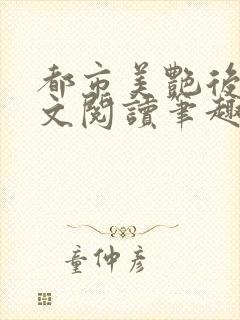 都市美艷後
文閱讀筆趣
童仲彥